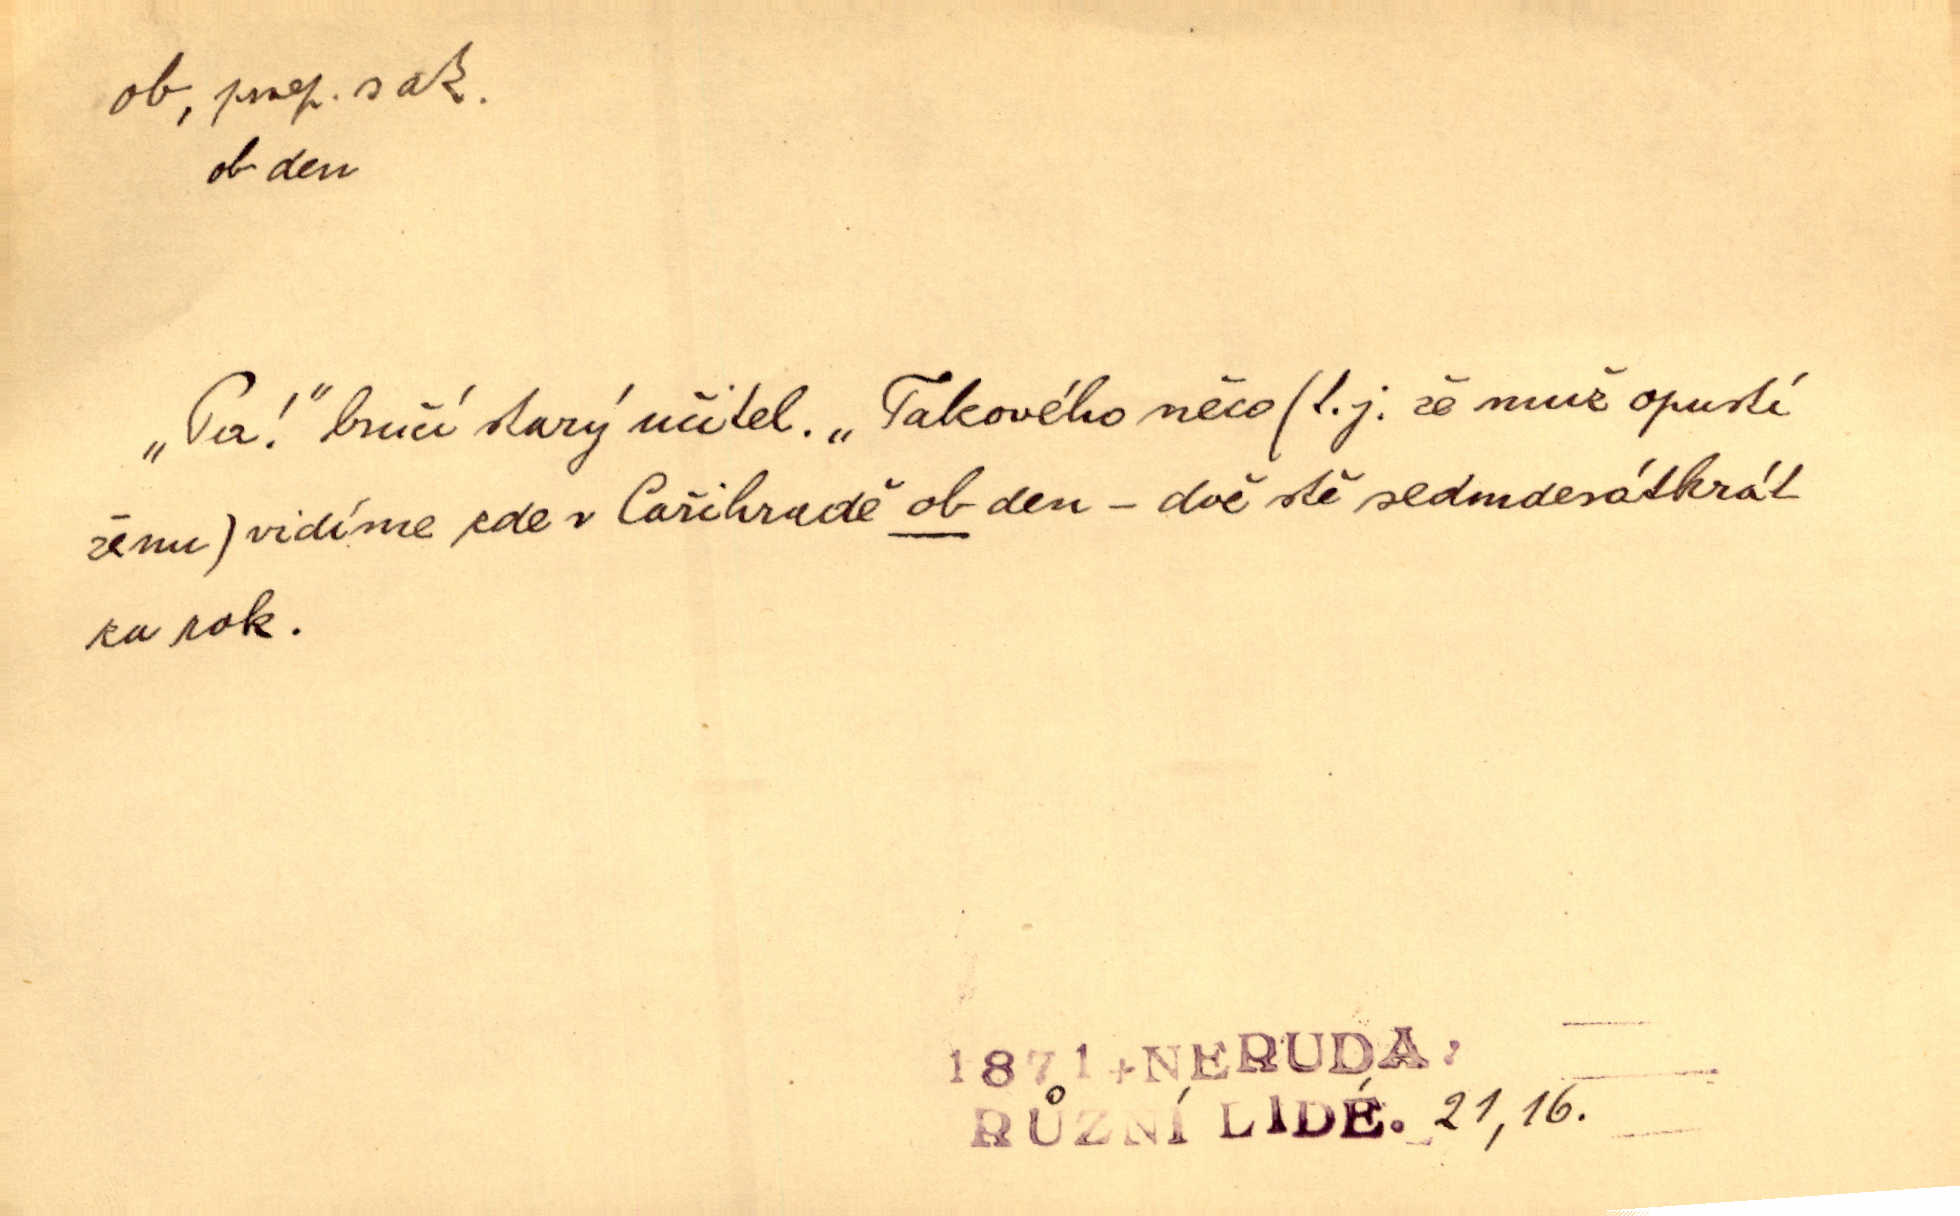 ob, praep. s ak.
ob den
„Pa!" bručí starý učitel. „Takového něco (t. j. že muž opustí
ženu) vidíme zde v Cařihradě ob den – dvě stě sedmdesátkrát
za rok.
1871 + NERUDA:
RŮZNÍ LIDÉ. 21, 16.